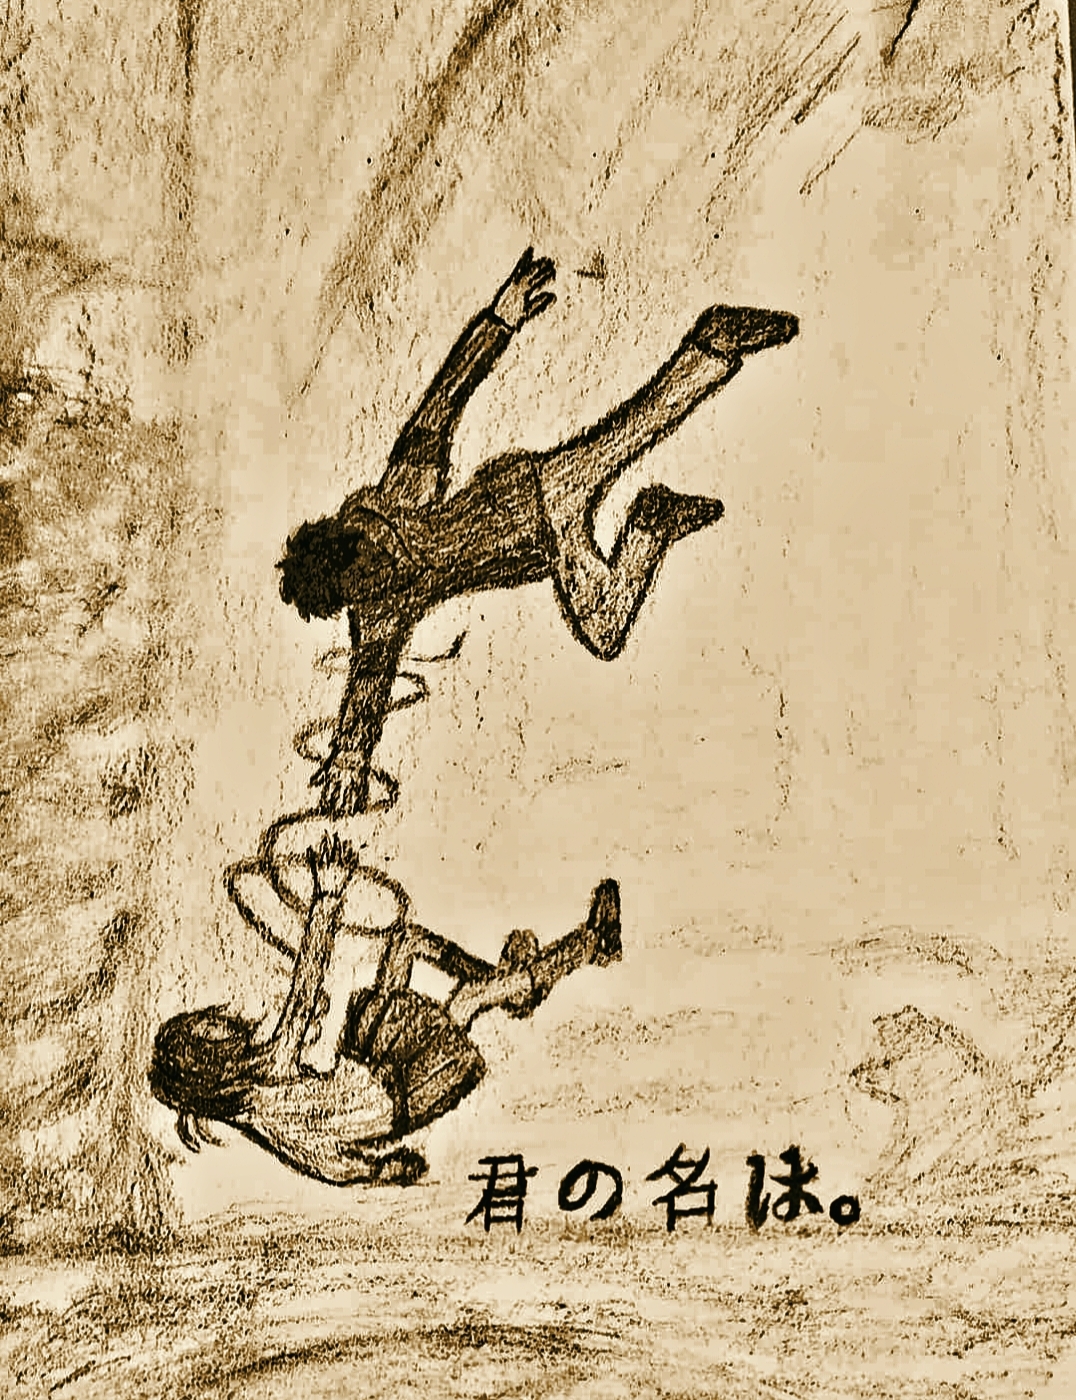 君の名は。